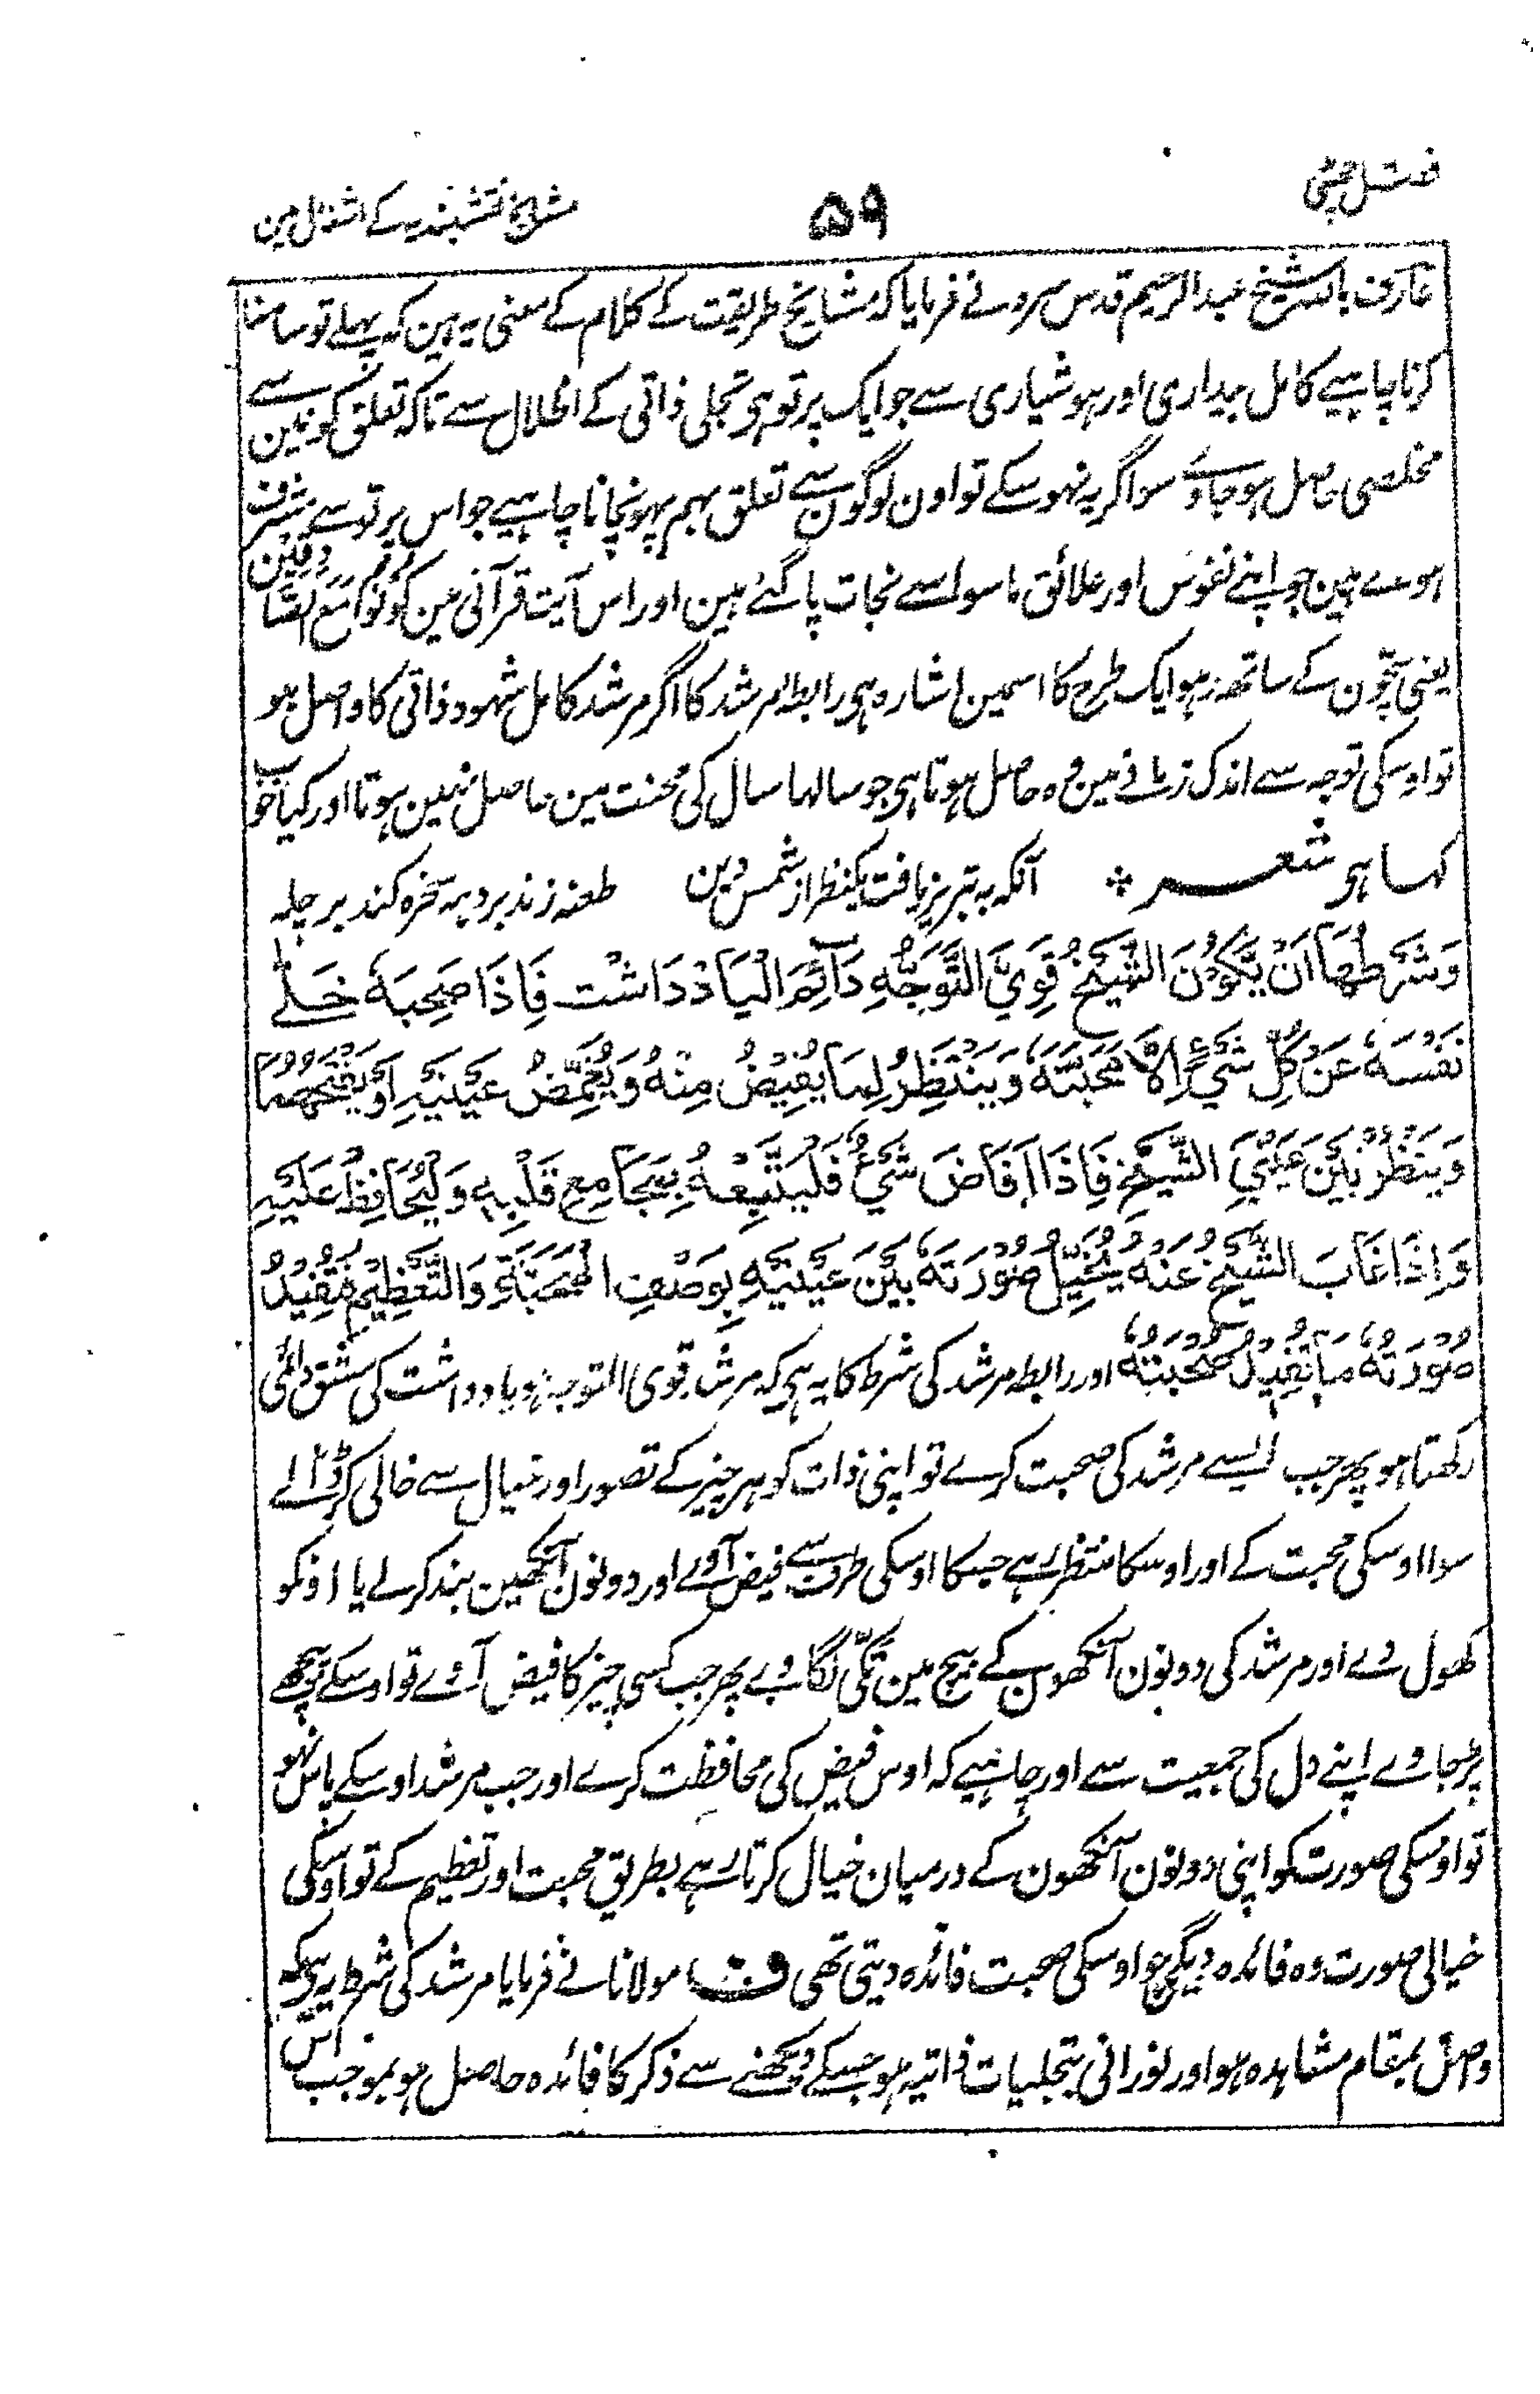 فصل چھٹی ۵۹ مشایخ نقشبندیہ کے اشغال مین
عارف باللہ شیخ عبد الرحیم قدس سرہ نے فرمایا کہ مشایخ طریقت کے کلام کے معنی یہ ہین کہ پہلے تو سامنا
کرنا چاہیے کامل بیداری اور ہوشیاری سے جو ایک پرتو ہی تجلی ذاتی کے اظلال سے تاکہ تعلق کونین سے
مخلصی حاصل ہو جاوے سو اگر یہ نہو سکے تو اون لوگون سے تعلق بہم پہونچانا چاہیے جو اس پرتو سے مشرف
ہوے ہین جو اپنے نفوس اور علائق ماسوا سے نجات پا گئے ہین اور اس آیت قرآنی مین كُوْنُوْا مَعَ الصَّادِقِيْنَ
یعنی سچون کے ساتھ رہو ایک طرح کا اسمین اشارہ ہی رابطہ مرشد کا اگر مرشد کامل شہود ذاتی کا واصل ہو
تو اوسکی توجہ سے اندک زمانے مین وہ حاصل ہوتا ہی جو سالہا سال کی محنت مین حاصل نہین ہوتا اور کیا خوب
کہا ہی شعر ❊ آنکہ بہ تبریز یافت یکنظر از شمس دین طعنہ زند بر دہہ سخرہ کند بر چلہ
وَشَرْطُهَا اَنْ يَّكُوْنَ الشَّيْخُ قَوِيَّ التَّوَجُّهِ دَآئِمَ الْيَادْدَاشْت فَاِذَا صَحِبَهٗ خَلّٰى
نَفْسَهٗ عَنْ كُلِّ شَيْءٍ اِلَّا مَحَبَّتَهٗ وَيَنْتَظِرُ لِمَا يَفِيْضُ مِنْهُ وَيُغَمِّضُ عَيْنَيْهِ اَوْ يَفْتَحُهُمَا
وَيَنْظُرُ بَيْنَ عَيْنَيِ الشَّيْخِ فَاِذَا اَفَاضَ شَيْءٌ فَلْيَتَّبِعْهُ بِمَجَامِعِ قَلْبِهٖ وَلْيُحَافِظْ عَلَيْهِ
وَاِذَا غَابَ الشَّيْخُ عَنْهُ يُخَيِّلُ صُوْرَتَهٗ بَيْنَ عَيْنَيْهِ بِوَصْفِ الْمَحَبَّةِ وَالتَّعْظِيْمِ فَتُفِيْدُ
صُوْرَتُهٗ مَا تُفِيْدُ صُحْبَتُهٗ اور رابطہ مرشد کی شرط کا یہ ہی کہ مرشد قوی التوجہ ہو یادداشت کی مشق دائمی
رکھتا ہو پھر جب ایسے مرشد کی صحبت کرے تو اپنی ذات کو ہر چیز کے تصور اور خیال سے خالی کر ڈالے
سوا اوسکی محبت کے اور اوسکا منتظر رہے جسکا اوسکی طرف سے فیض آوے اور دونون آنکھین بند کر لے یا اونکو
کھول دے اور مرشد کی دونون آنکھون کے بیچ مین تکی لگاوے پھر جب کسی چیز کا فیض آوے تو اوسکے پیچھے
پڑ جاوے اپنے دل کی جمعیت سے اور چاہیے کہ اوس فیض کی محافظت کرے اور جب مرشد اوسکے پاس نہو
تو اوسکی صورت کو اپنی دونون آنکھون کے درمیان خیال کرتا رہے بطریق محبت اور تعظیم کے تو اوسکی
خیالی صورت وہ فائدہ دیگی جو اوسکی صحبت فائدہ دیتی تھی ف مولانا نے فرمایا مرشد کی شرط یہ ہی کہ
واصل بمقام مشاہدہ ہو اور نورانی بتجلیات ذاتیہ ہو جسکے دیکھنے سے ذکر کا فائدہ حاصل ہو بموجب اس